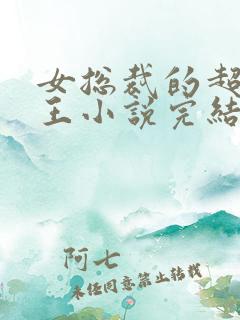 女总裁的超
王小说完结
阿七
未经同意禁止转载